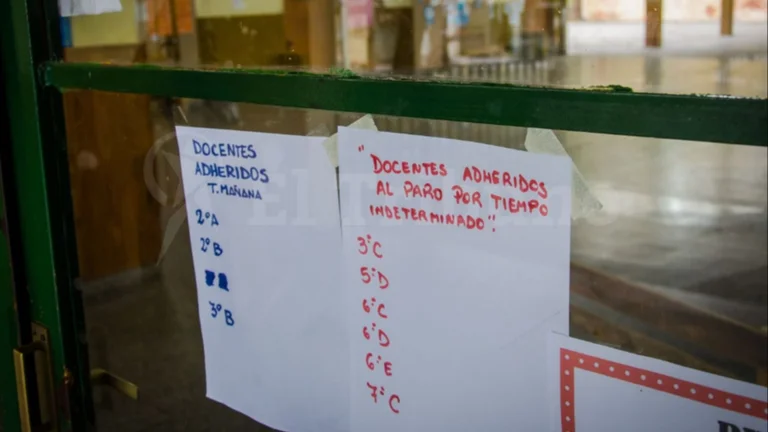 DOCENTES
ADHERIDOS
T. MAÑANA
2°A
2°B
3°B
"DOCENTES ADHERIDOS
AL PARO POR TIEMPO
INDETERMINADO".
3°C
5°D
6°C
6°D
6°E
7°C